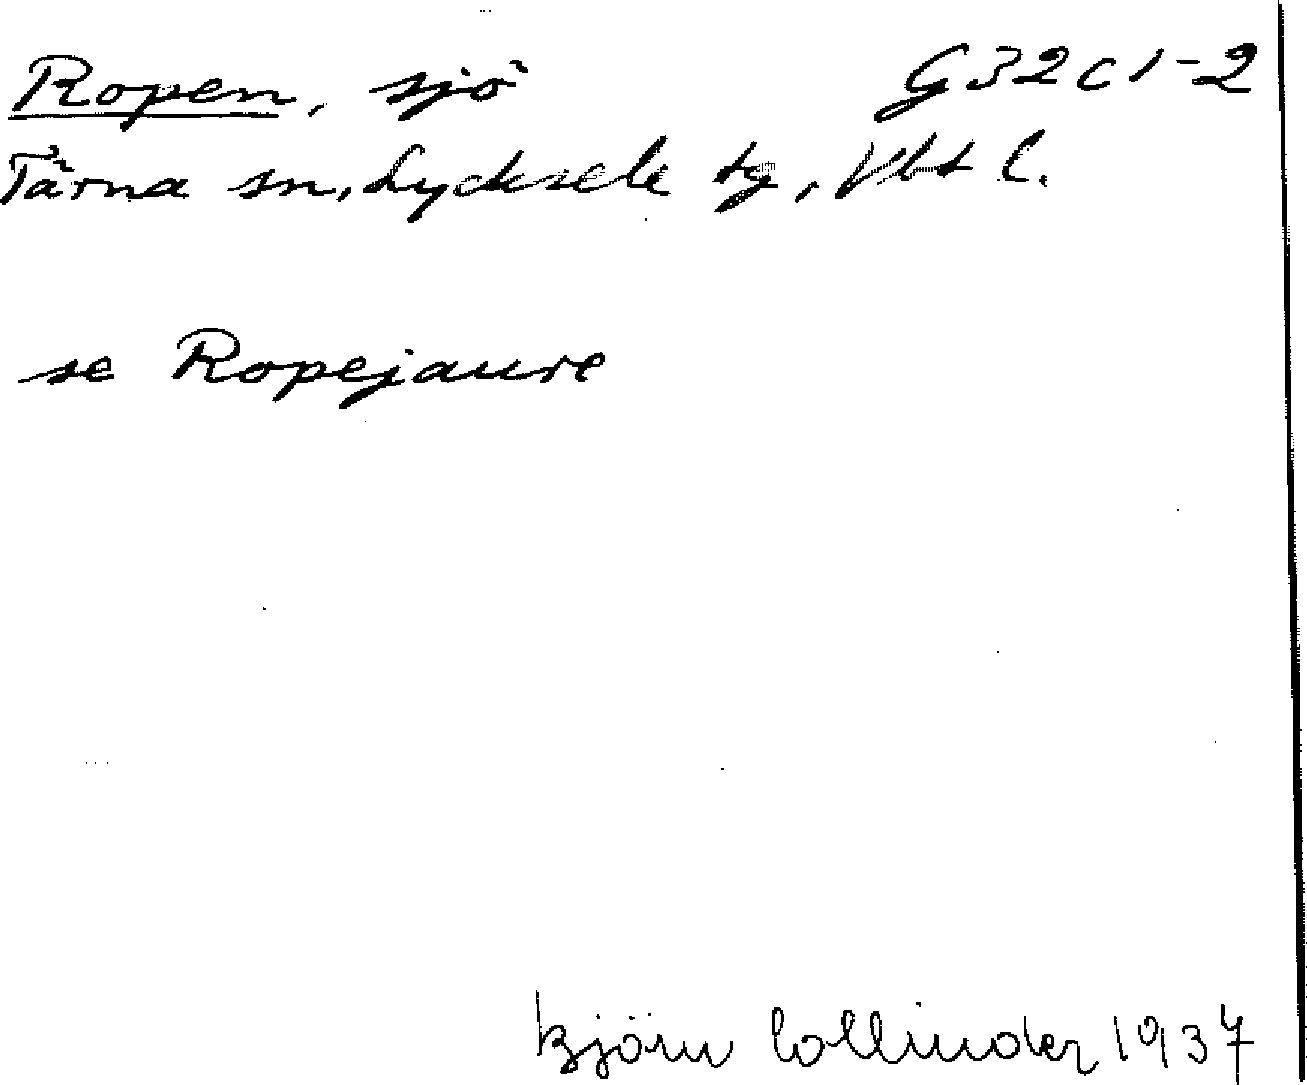 Ropen, sjö G32c1-2
Tärna sn, Lycksele tg, Vbt l.
se Ropejaure
Björn Collinder 1937